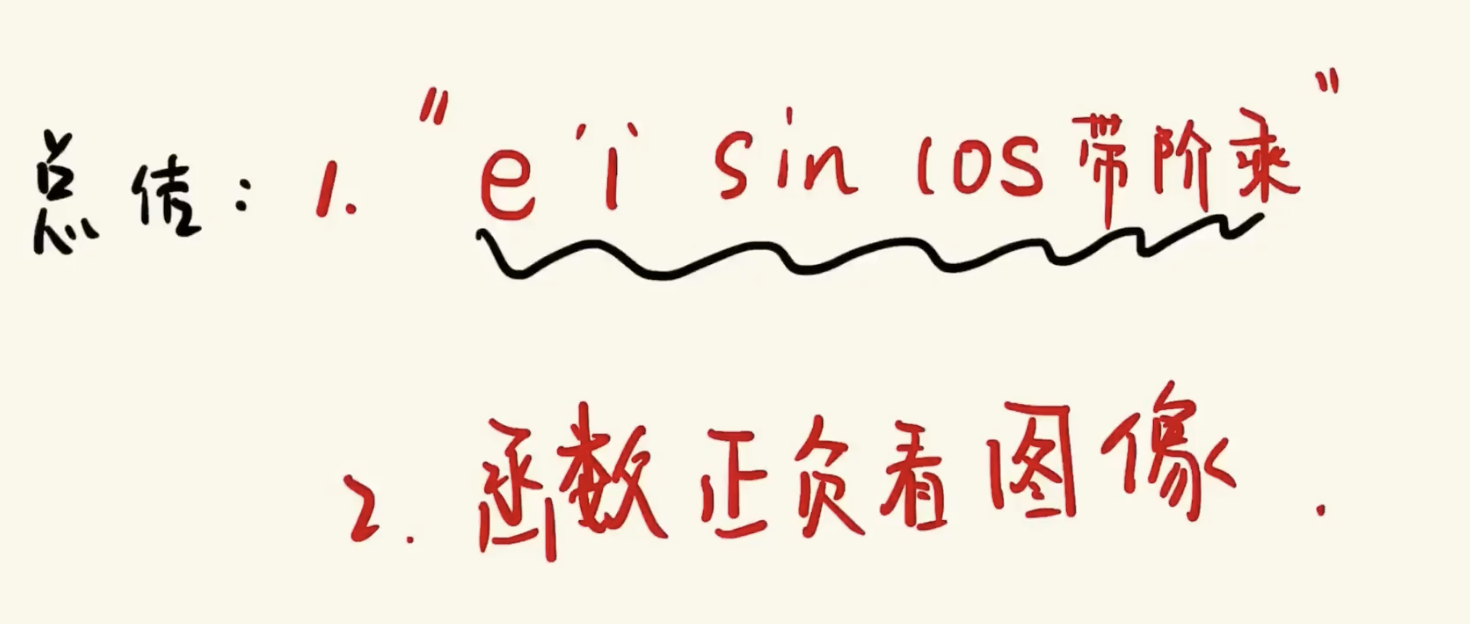 总结:1. "e 'i' sin cos 带阶乘"
2. 函数正负看图像.